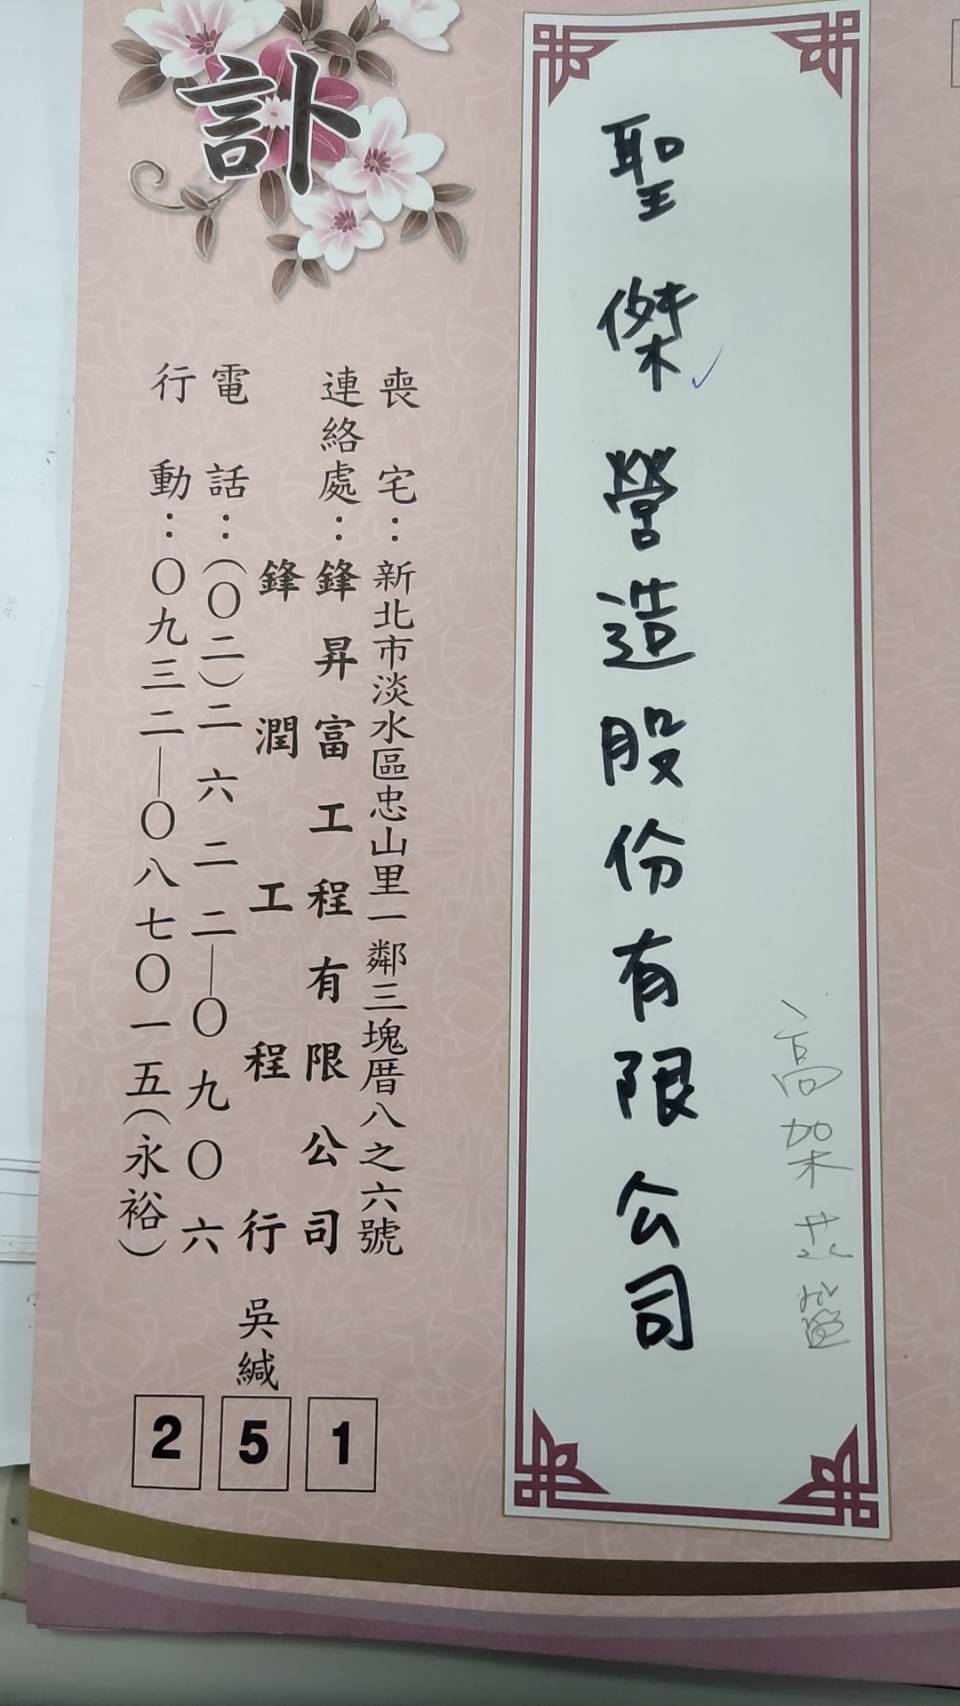 聖傑營造股份有限公司
高架花籃
訃
喪宅：新北市淡水區忠山里一鄰三塊厝八之六號
連絡處：鋒昇富工程有限公司
鋒潤工程行
電話：（〇二）二六二二—〇九〇六
行動：〇九三二—〇八七〇一五（永裕）
吳緘
251